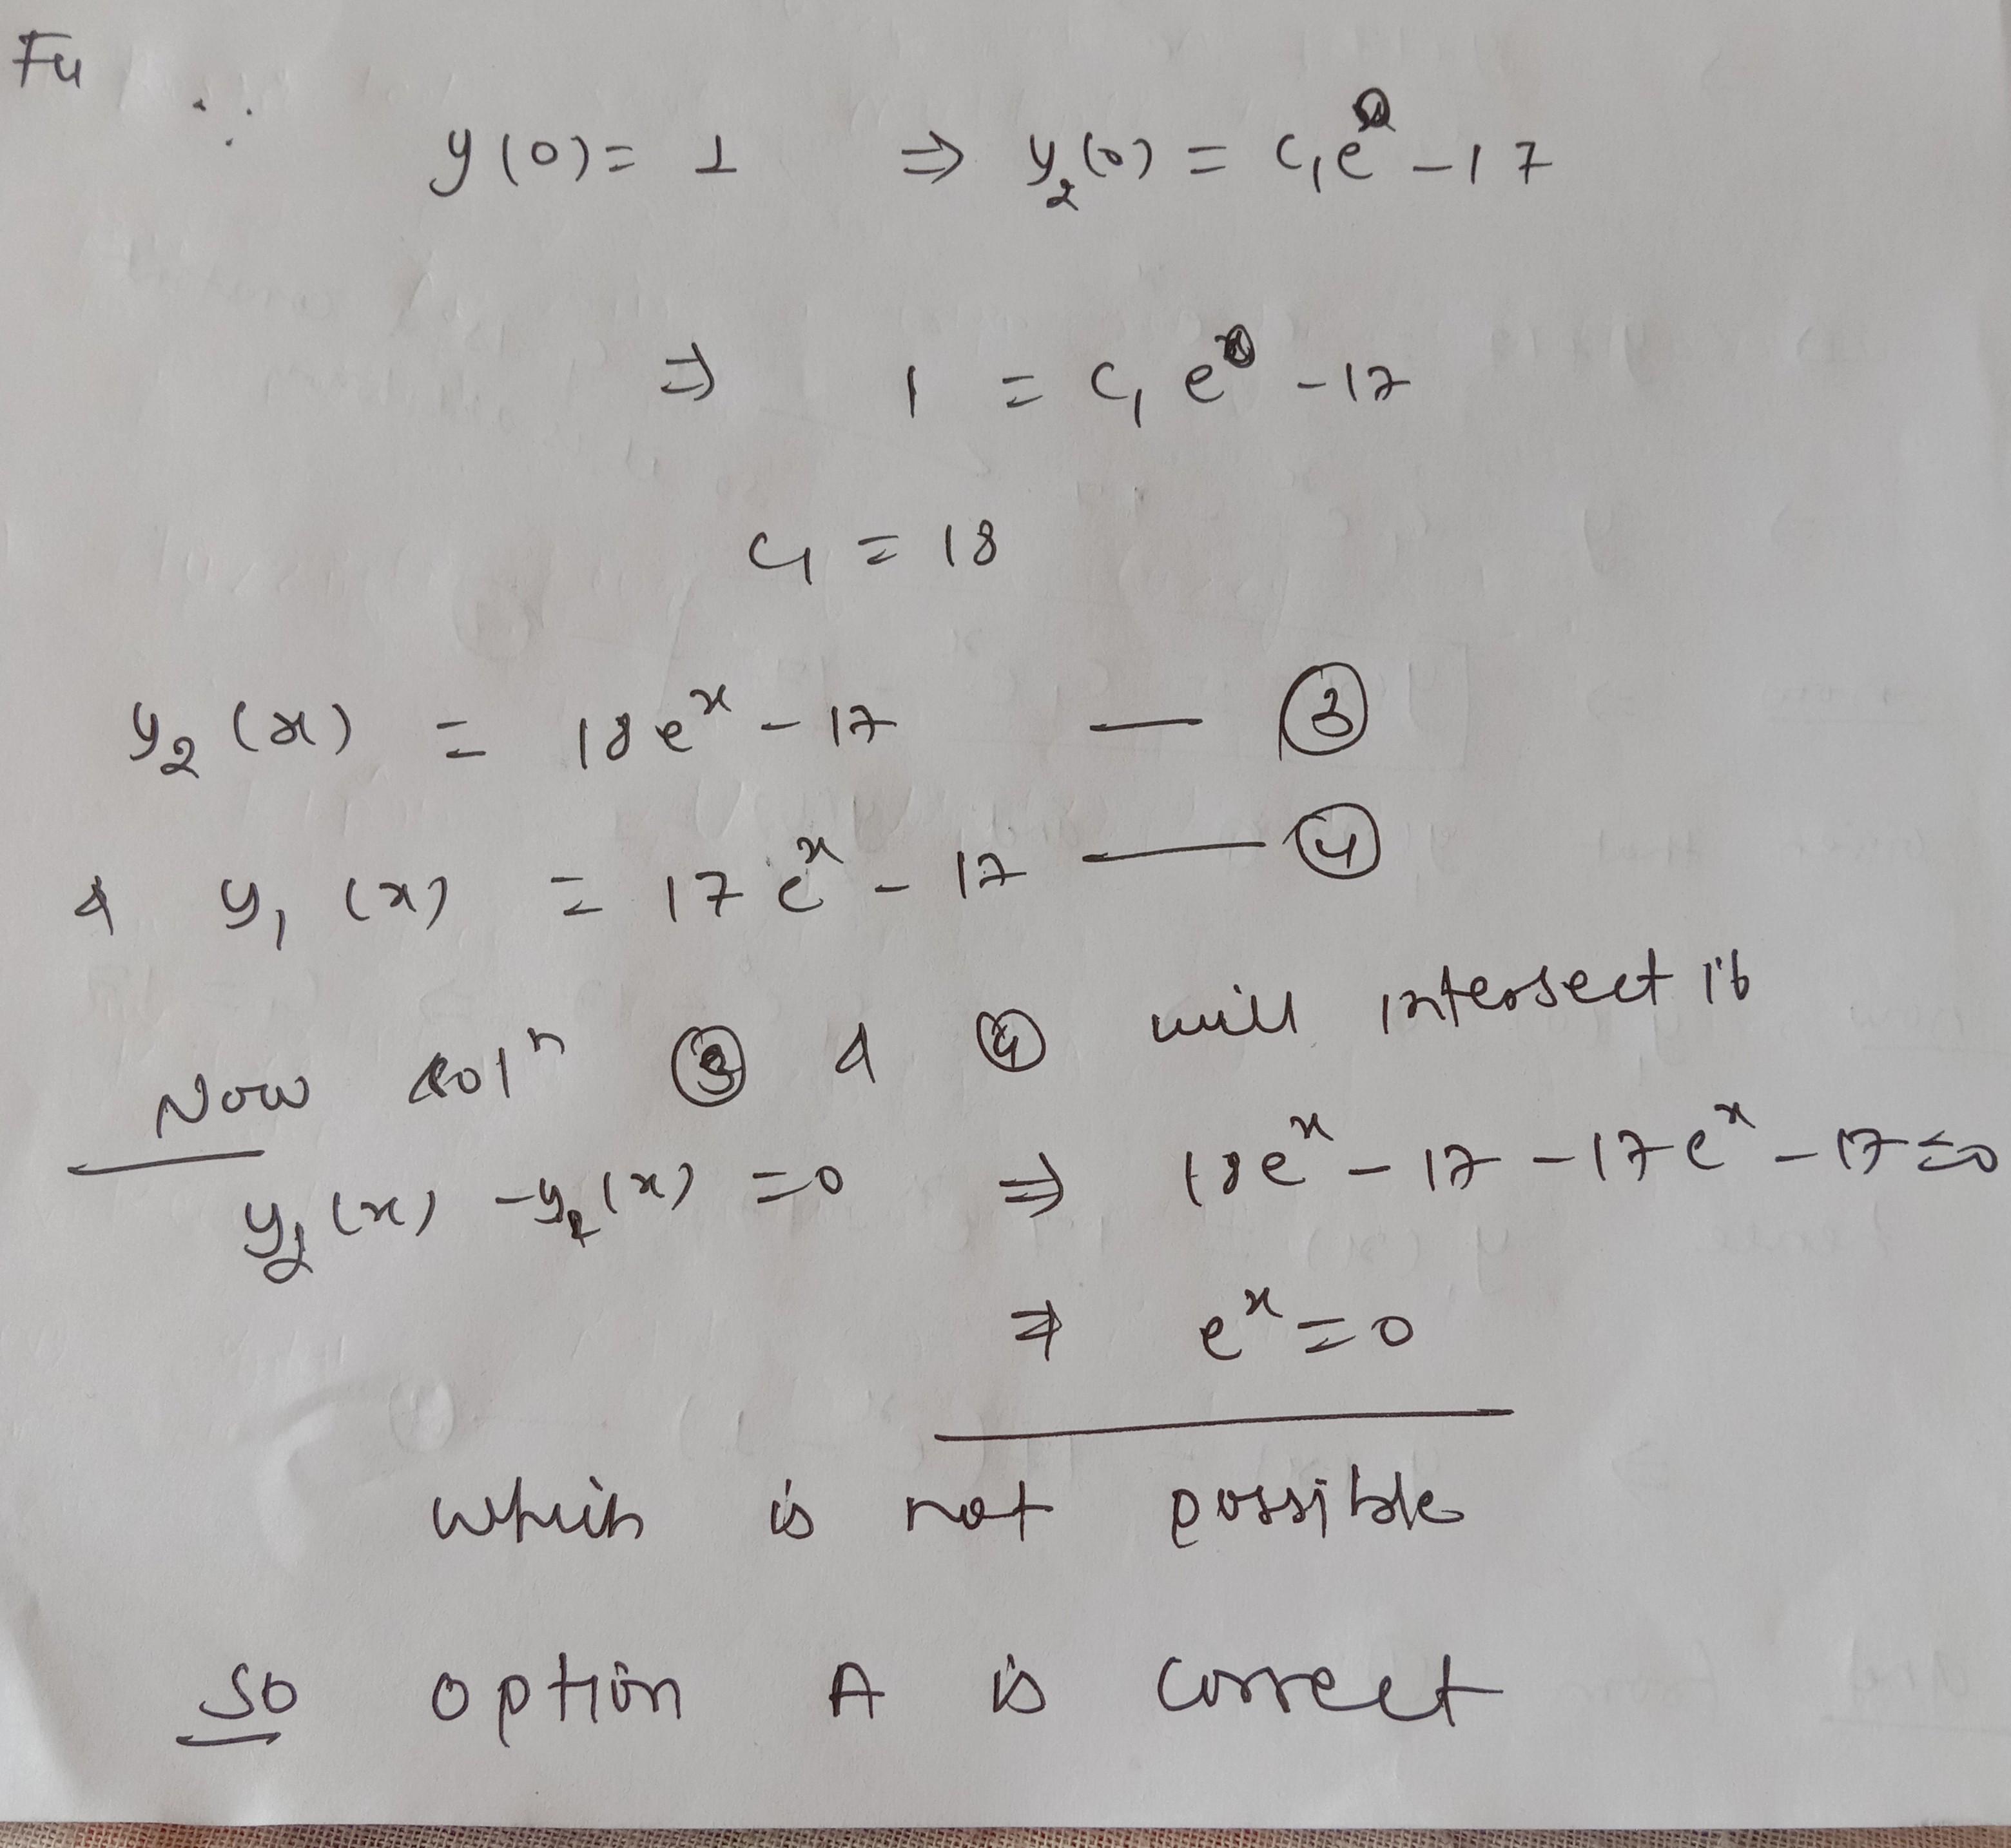 Fu
∵ y(0) = 1 ⇒ y₂(0) = C₁e⁰ - 17
⇒ 1 = C₁e⁰ - 17
C₁ = 18
y₂(x) = 18eˣ - 17 — ③
& y₁(x) = 17eˣ - 17 — ④
Now solⁿ ③ & ④ will intersect if
y₂(x) - y₁(x) = 0 ⇒ 18eˣ - 17 - 17eˣ - 17 = 0
⇒ eˣ = 0
which is not possible
So option A is correct